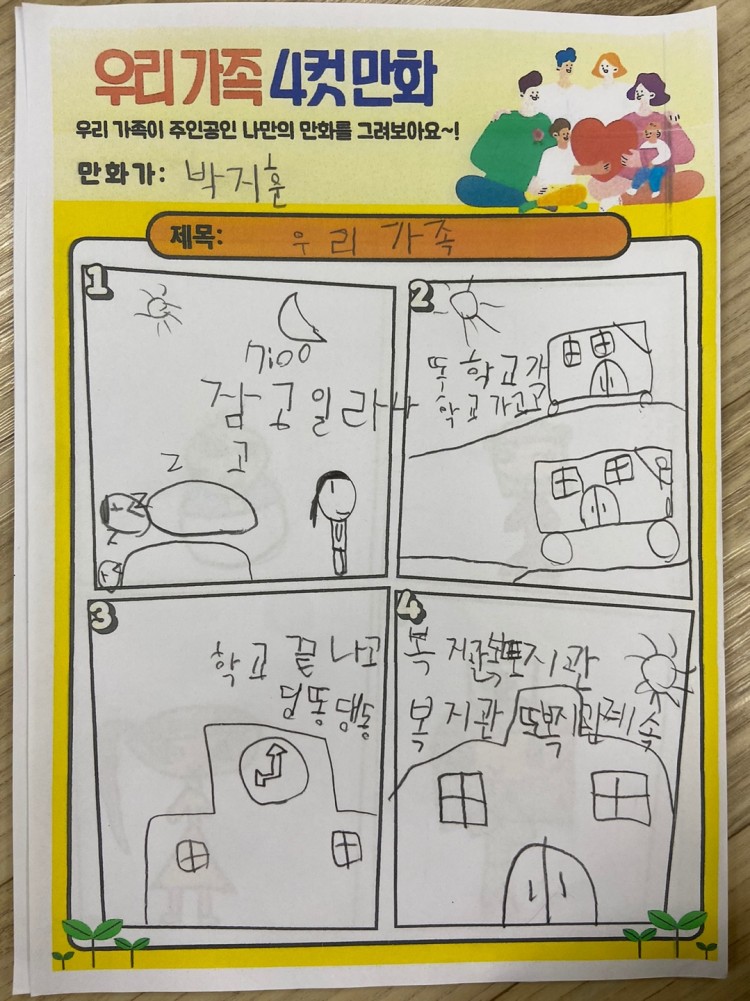 우리 가족 4컷 만화
우리 가족이 주인공인 나만의 만화를 그려보아요~!
만화가: 박지훈
제목: 우리 가족
1
7:00
잠 공 일 라 나
고
z
z
z
2
또 학교가
학교가고고
3
학교 끝나고
딩동댕동
4
복지관 또 지관
복지관 또복지관계속